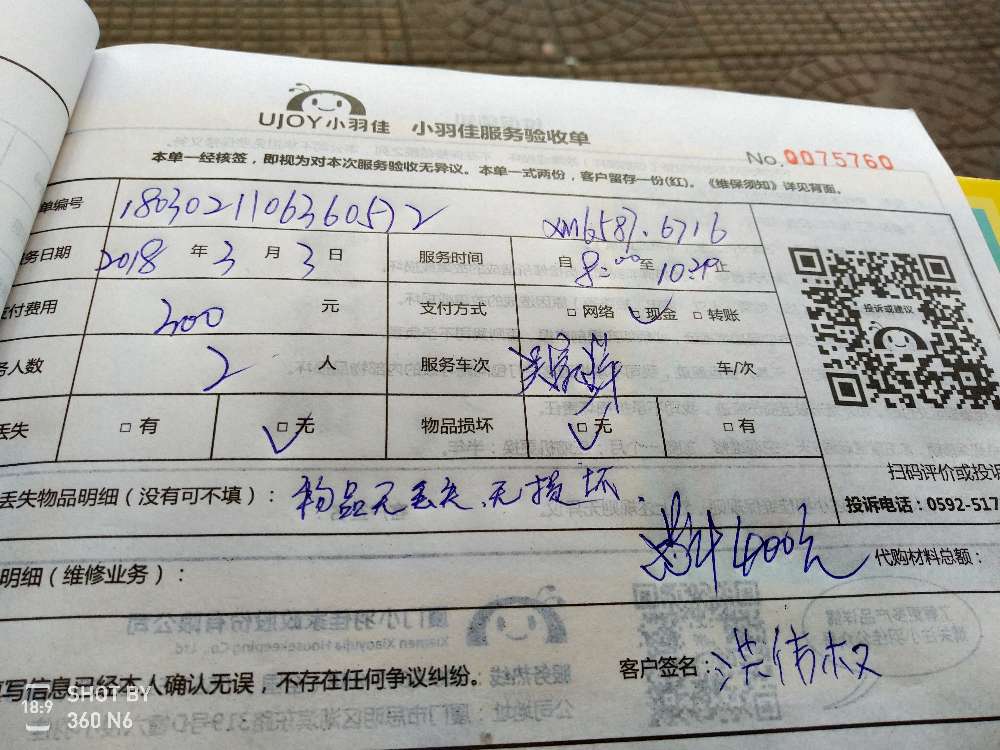 UJOY小羽佳 小羽佳服务验收单
No.0075760
本单一经核签，即视为对本次服务验收无异议。本单一式两份，客户留存一份(红)。《维保须知》详见背面。
单编号 1803021106360572 xm6587.6716
务日期 2018 年 3 月 3 日 服务时间 自 8:00 至 止
付费用 300 元 支付方式 □ 网络 □ 现金 □ 转账
务人数 2 人 服务车次 车/次
丢失 □ 有 □ 无 物品损坏 □ 无 □ 有
投诉或建议
扫码评价或投诉
投诉电话：0592-517
丢失物品明细（没有可不填）： 物品无丢失、无损坏.
400元 代购材料总额：
明细（维修业务）：
写信息已经本人确认无误，不存在任何争议纠纷。 客户签名：洪伟权
18:9 SHOT BY
360 N6